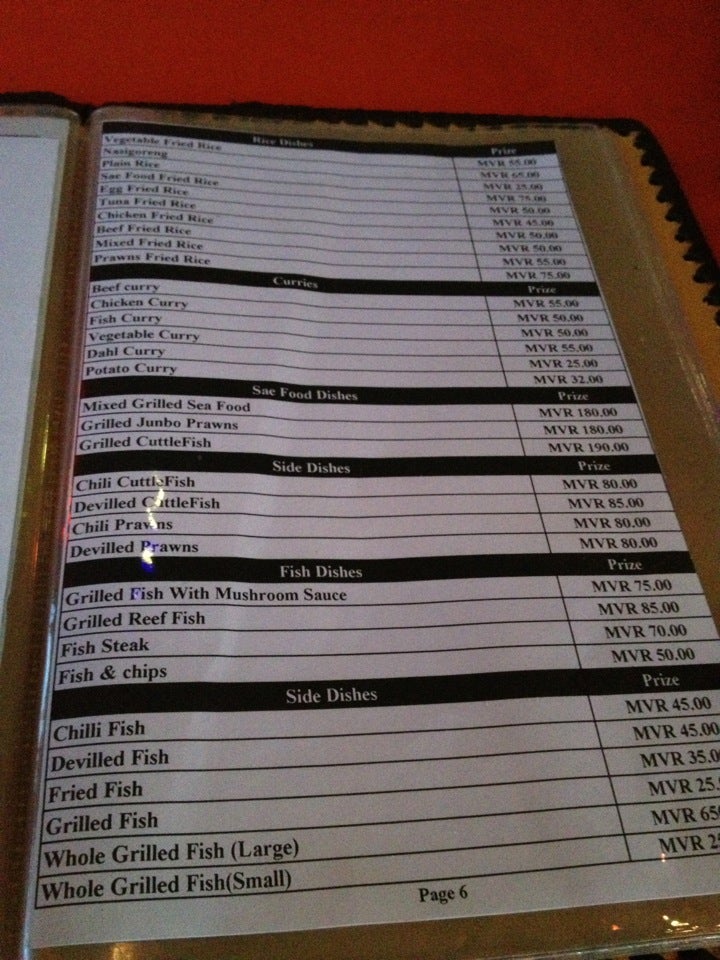 Rice Dishes Prize
Vegetable Fried Rice MVR 55.00
Nazigoreng MVR 65.00
Plain Rice MVR 25.00
Sae Food Fried Rice MVR 75.00
Egg Fried Rice MVR 50.00
Tuna Fried Rice MVR 45.00
Chicken Fried Rice MVR 50.00
Beef Fried Rice MVR 50.00
Mixed Fried Rice MVR 55.00
Prawns Fried Rice MVR 75.00
Curries Prize
Beef curry MVR 55.00
Chicken Curry MVR 50.00
Fish Curry MVR 50.00
Vegetable Curry MVR 55.00
Dahl Curry MVR 25.00
Potato Curry MVR 32.00
Sae Food Dishes Prize
Mixed Grilled Sea Food MVR 180.00
Grilled Junbo Prawns MVR 180.00
Grilled CuttleFish MVR 190.00
Side Dishes Prize
Chili CuttleFish MVR 80.00
Devilled CuttleFish MVR 85.00
Chili Prawns MVR 80.00
Devilled Prawns MVR 80.00
Fish Dishes Prize
Grilled Fish With Mushroom Sauce MVR 75.00
Grilled Reef Fish MVR 85.00
Fish Steak MVR 70.00
Fish & chips MVR 50.00
Side Dishes Prize
Chilli Fish MVR 45.00
Devilled Fish MVR 45.00
Fried Fish MVR 35.0
Grilled Fish MVR 25.
Whole Grilled Fish (Large) MVR 65
Whole Grilled Fish(Small) MVR 2
Page 6